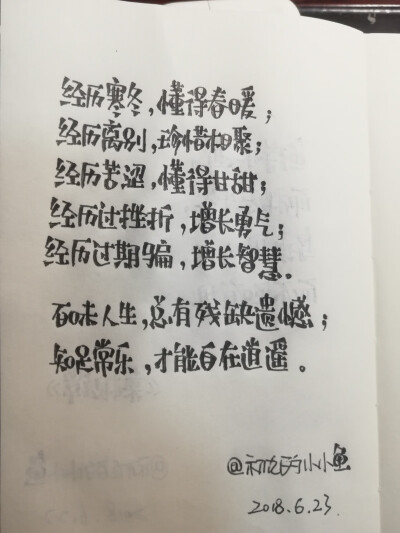 经历寒冬，懂得春暖；
经历离别，珍惜相聚；
经历苦涩，懂得甘甜；
经历过挫折，增长勇气；
经历过期骗，增长智慧。
百味人生，总有残缺遗憾；
知足常乐，才能自在逍遥。
@初晓的小小鱼
2018.6.23.